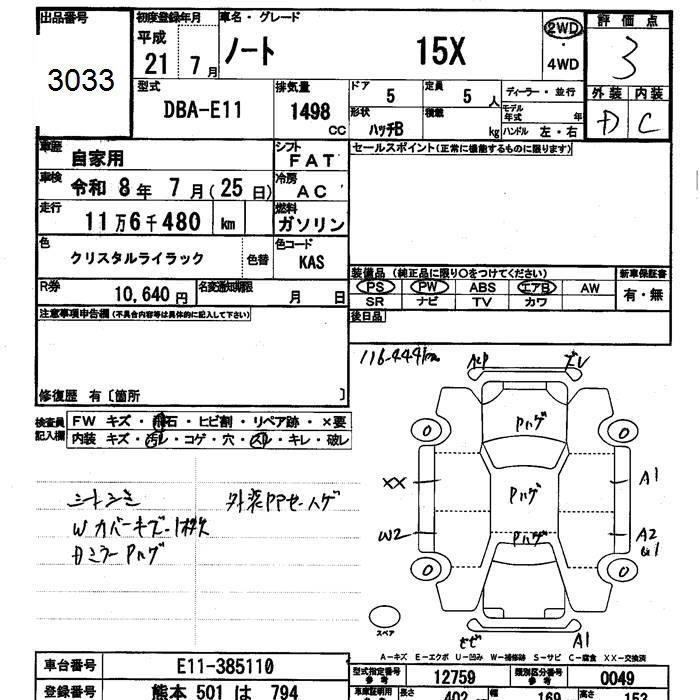 出品番号
3033
初度登録年月
平成
21 7 月
車名・グレード
ノート 15X
2WD
・
4WD
評価点
3
外装 内装
D C
型式
DBA-E11
排気量
1498
CC
ドア 5
定員 5 人
形状 ハッチB
積載 kg
ディーラー・並行
モデル年式 年
ハンドル 左・右
車歴 自家用
シフト FAT
車検 令和 8 年 7 月(25 日)
冷房 AC
走行 11 万6 千480 km
燃料 ガソリン
色 クリスタルライラック 色替
色コード KAS
R券 10,640 円
名変通知期限 月 日
セールスポイント(正常に機能するものに限ります)
装備品(純正品に限り○をつけてください)
PS PW ABS エアB AW
SR ナビ TV カワ
新車保証書
有・無
後日品
注意事項申告欄(不具合内容等は具体的に記入して下さい)
修復歴 有〔箇所 〕
検査員記入欄
FW キズ・飛石・ヒビ割・リペア跡・×要
内装 キズ・汚レ・コゲ・穴・スレ・キレ・破レ
シートシミ
Wカバーキズ
DミラーPハゲ
116.444km
ズレ
Pハゲ
Pハゲ
Pハゲ
0 0
XX A1
W2 A2
0 0
A1
スペア
A-キズ E-エクボ U-凹み W-補修跡 S-サビ C-腐食 XX-交換済
車台番号 E11-385110
登録番号 熊本 501 は 794
型式指定番号 参考 12759
類別区分番号 参考 0049
長さ 402
幅 169
高さ 153